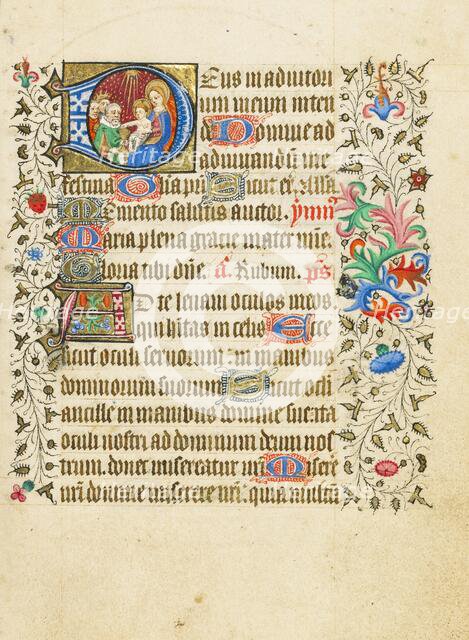 Deus in adiutori
um meum inten
de Domine ad
adiuvandum
festina Gloria pri Sicut et Alla
Memento salutis auctor ymn
Maria plena gratie mater mie
Gloria tibi dne a Rubum ps
Ad te levavi oculos meos
qui habitas in celis Ecce
sicut oculi servorum in manibus
dominorum suorum Sicut ocli
ancille in manibus domine sue ita
oculi nostri ad dominum deum nos
trum donec misereatur nri Misere
nri domine miserere nri quia multu
Heritage
Heritage
Heritage